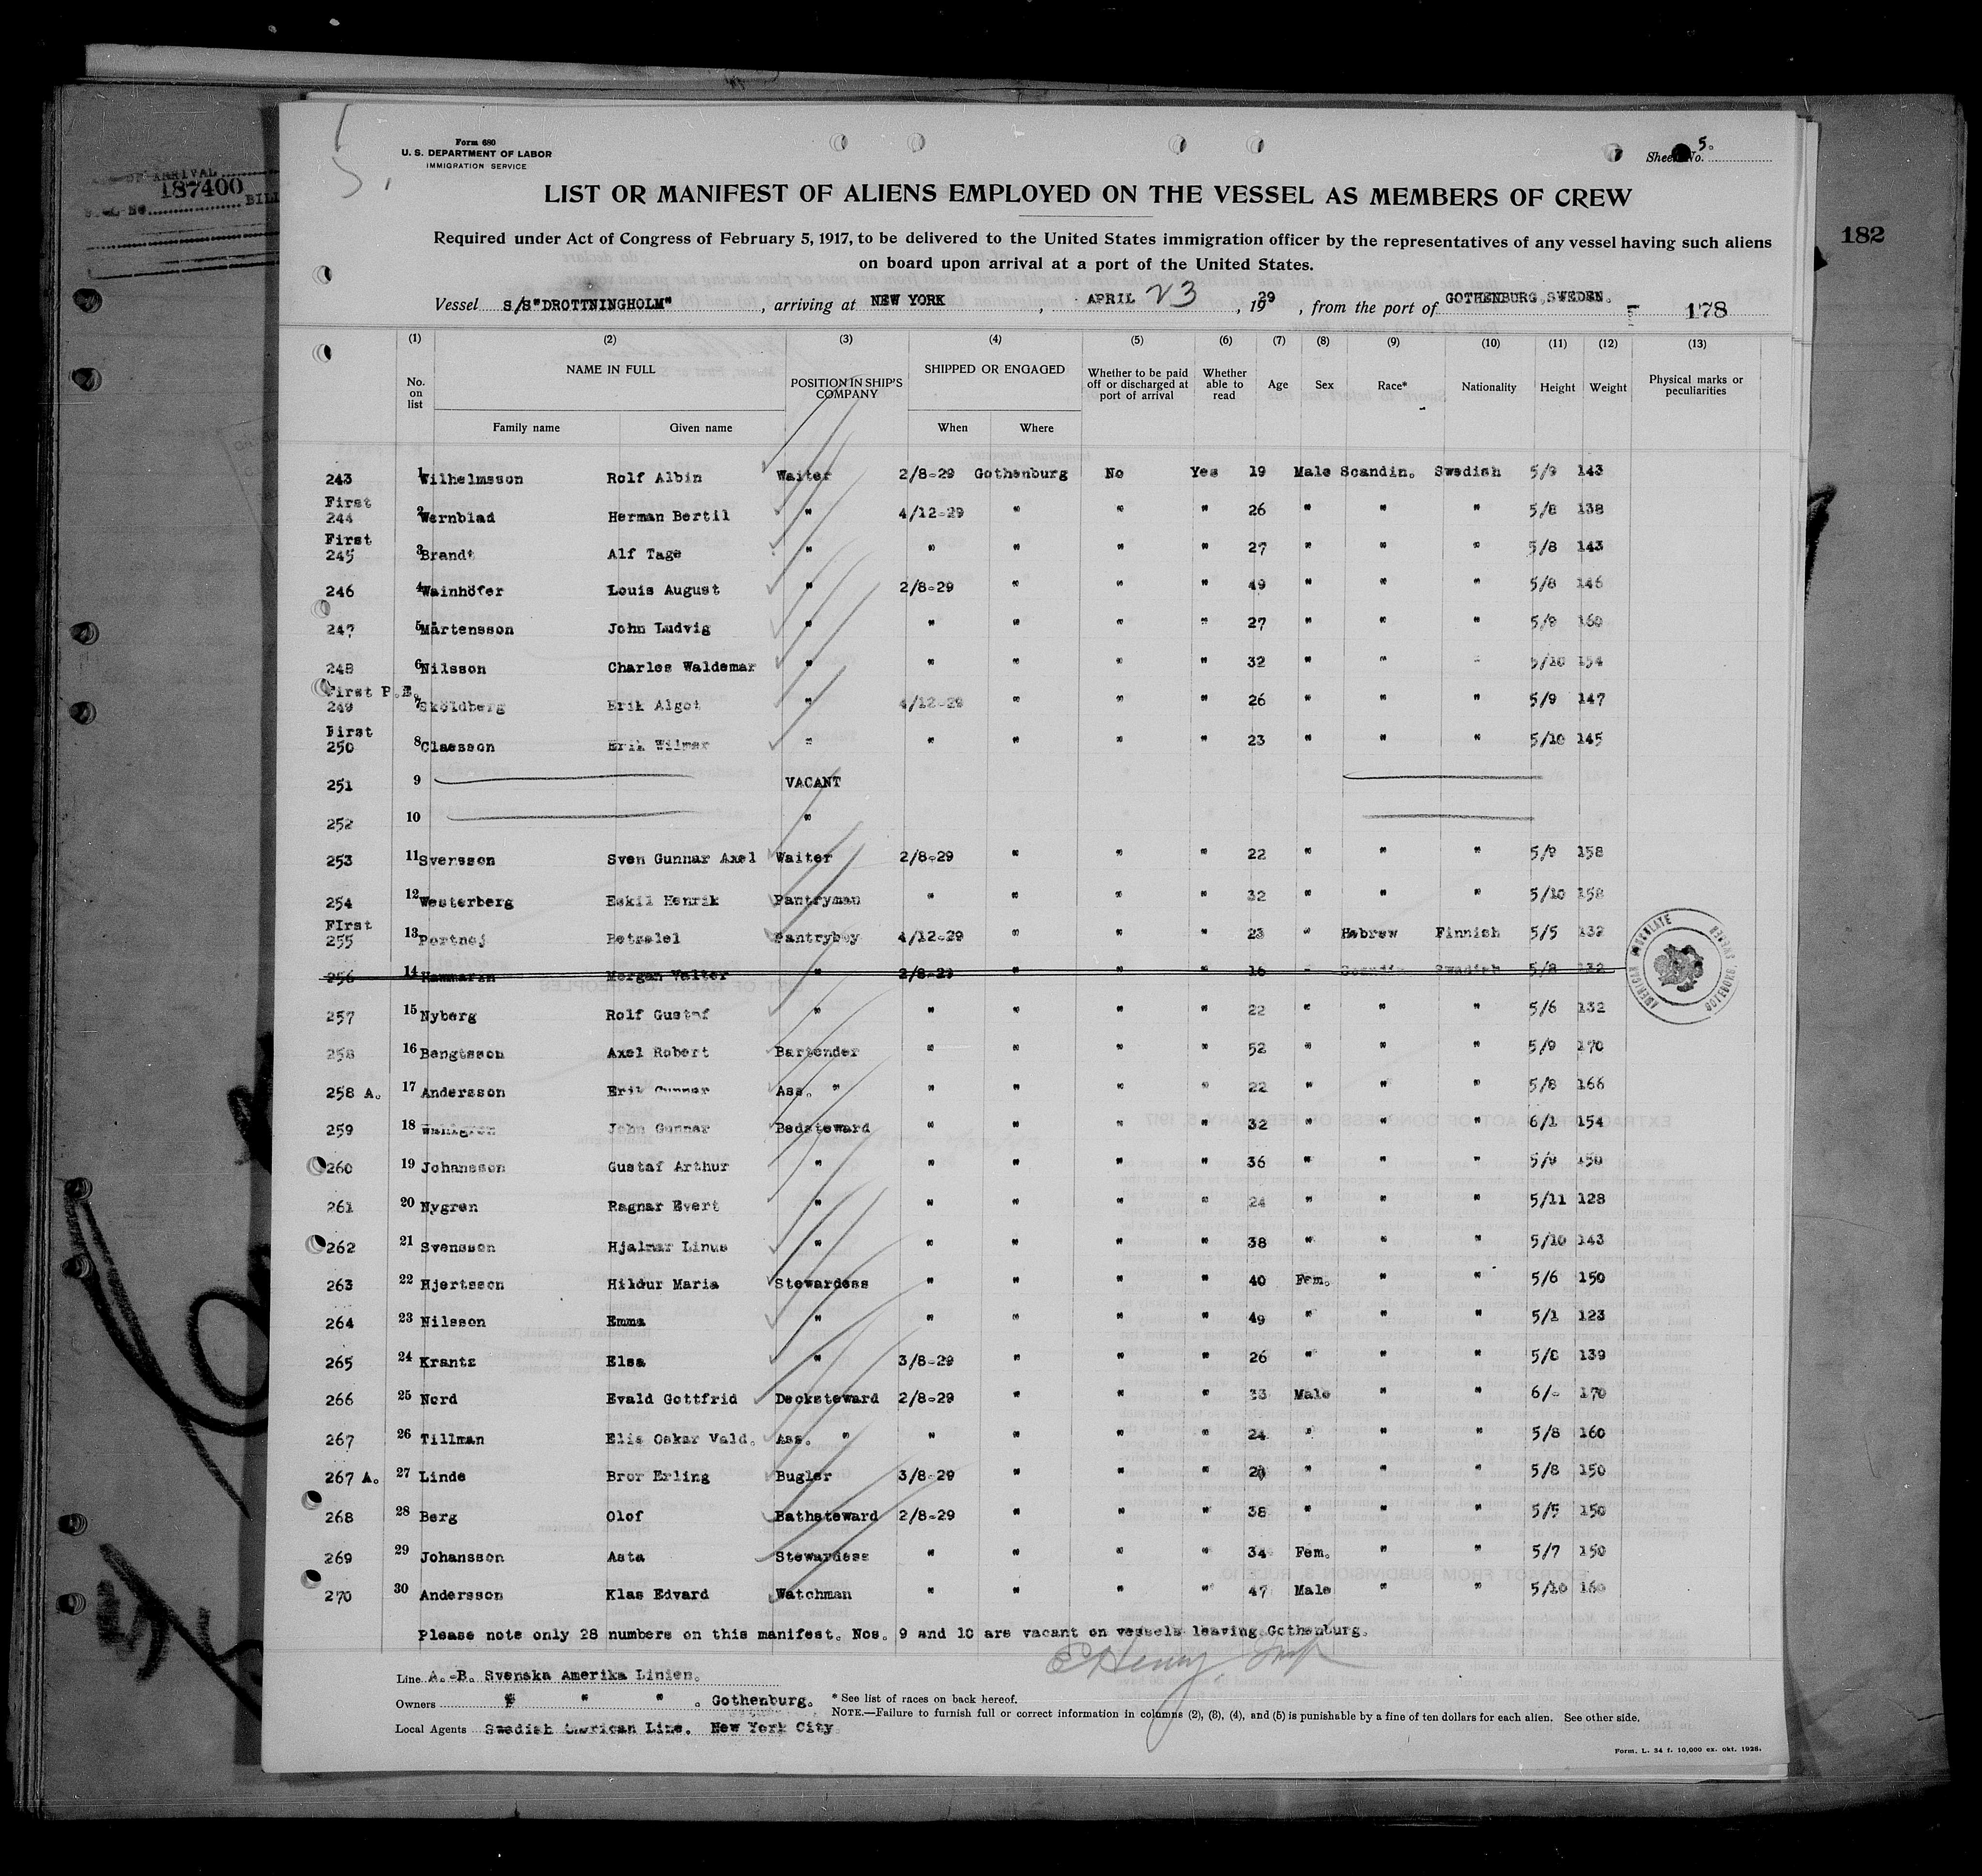 187400
BILL
182
Form 680
U. S. DEPARTMENT OF LABOR
IMMIGRATION SERVICE
Sheet No. 5.
LIST OR MANIFEST OF ALIENS EMPLOYED ON THE VESSEL AS MEMBERS OF CREW
Required under Act of Congress of February 5, 1917, to be delivered to the United States immigration officer by the representatives of any vessel having such aliens
on board upon arrival at a port of the United States.
Vessel S/S "DROTTNINGHOLM", arriving at NEW YORK, APRIL 23, 1929, from the port of GOTHENBURG, SWEDEN. 178
(1) (2) (3) (4) (5) (6) (7) (8) (9) (10) (11) (12) (13)
No. on list NAME IN FULL POSITION IN SHIP'S COMPANY SHIPPED OR ENGAGED Whether to be paid off or discharged at port of arrival Whether able to read Age Sex Race* Nationality Height Weight Physical marks or peculiarities
Family name Given name When Where
243 1 Wilhelmsson Rolf Albin Waiter 2/8-29 Gothenburg No Yes 19 Male Scandin. Swedish 5/9 143
First
244 2 Wernblad Herman Bertil " 4/12-29 " " " 26 " " " 5/8 138
First
245 3 Brandt Alf Tage " " " " " 27 " " " 5/8 143
246 4 Wainhöfer Louis August " 2/8-29 " " " 49 " " " 5/8 146
247 5 Mårtensson John Ludvig " " " " " 27 " " " 5/9 160
248 6 Nilsson Charles Waldemar " " " " " 32 " " " 5/10 154
First P.E.
249 7 Sköldberg Erik Algot " 4/12-29 " " " 26 " " " 5/9 147
First
250 8 Claesson Erik Wilmar " " " " " 23 " " " 5/10 145
251 9 VACANT
252 10 "
253 11 Svensson Sven Gunnar Axel Waiter 2/8-29 " " " 22 " " " 5/9 158
254 12 Westerberg Eskil Henrik Pantryman " " " " 32 " " " 5/10 158
FIrst
255 13 Portnoj Betzalel Pantryboy 4/12-29 " " " 23 " Hebrew Finnish 5/5 132
256 14 Hammaren Morgan Walter " 2/8-29 " " " 16 " Scandin Swedish 5/8 132
AMERICAN CONSULATE GOTHENBURG, SWEDEN
257 15 Nyberg Rolf Gustaf " " " " " 22 " " " 5/6 132
258 16 Bengtsson Axel Robert Bartender " " " " 52 " " " 5/9 170
258 A. 17 Andersson Erik Gunnar Ass. " " " " " 22 " " " 5/8 166
259 18 Wahlgren John Gunnar Bedsteward " " " " 32 " " " 6/1 154
260 19 Johansson Gustaf Arthur " " " " " 36 " " " 5/9 150
261 20 Nygren Ragnar Evert " " " " " 24 " " " 5/11 128
262 21 Svensson Hjalmar Linus " " " " " 38 " " " 5/10 143
263 22 Hjertsson Hildur Maria Stewardess " " " " 40 Fem. " " 5/6 150
264 23 Nilsson Emma " " " " " 49 " " " 5/1 123
265 24 Krantz Elsa " 3/8-29 " " " 26 " " " 5/8 139
266 25 Nord Evald Gottfrid Decksteward 2/8-29 " " " 33 Male " " 6/- 170
267 26 Tillman Elis Oskar Vald. Ass. " " " " " 24 " " " 5/8 160
267 A. 27 Linde Bror Erling Bugler 3/8-29 " " " " " " 5/8 150
268 28 Berg Olof Bathsteward 2/8-29 " " " 38 " " " 5/5 150
269 29 Johansson Asta Stewardess " " " " 34 Fem. " " 5/7 150
270 30 Andersson Klas Edvard Watchman " " " " 47 Male " " 5/10 160
Please note only 28 numbers on this manifest. Nos. 9 and 10 are vacant on vessels leaving Gothenburg.
Line A.-B. Svenska Amerika Linien.
Owners " " " . Gothenburg.
Local Agents Swedish American Line. New York City
* See list of races on back hereof.
NOTE.—Failure to furnish full or correct information in columns (2), (3), (4), and (5) is punishable by a fine of ten dollars for each alien. See other side.
Form. L. 34 f. 10,000 ex. okt. 1928.